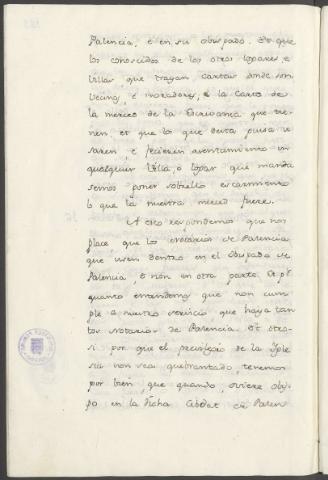 Palencia, é en su obispado. Et que
los conoscidos de los otros logares, e
Villas, que trayan cartas donde son
vecinos, é moradores, é la carta de
la merced de la Escrivania que tie-
nen et que lo que desta guisa u-
saren, é ficieren aventamiento en
qualquier Villa, o logar que manda
semos poner sobiello escarmiento
lo que la nuestra merced fuere.
A esto respondemos que nos
place, que los notarios de Palencia
que usen dentro en el Obispado de
Palencia, é non en otra parte. Ca pr
quanto entendemos que non cum
ple a nuestro servicio que haya tan
tos notarios de Palencia. Et otro-
si por que el previlegio de la Igle
sia non sea quebrantado, tenemos
por bien, que quando oviere obis-
po en la dicha Cibdat de Palen